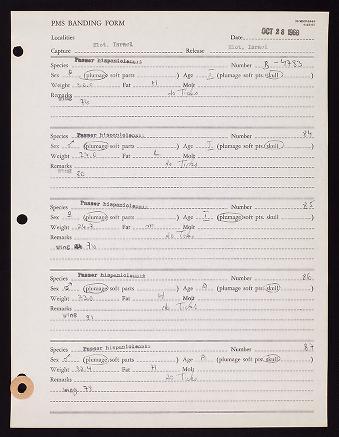 PMS BANDING FORM
Localities Date OCT 28 1968
Capture Eiot, Israel Release Eiot, Israel
Species Passer hispaniolensis Number B-4783
Sex (plumage) soft parts ) Age I (plumage soft pts. skull)
Weight Fat M Molt
Remarks No Ticks
Wing
Species Passer hispaniolensis Number 84
Sex ♂ (plumage) soft parts ) Age I (plumage soft pts. skull)
Weight Fat L Molt
Remarks no Ticks
Wing 80
Species Passer hispaniolensis Number 85
Sex (plumage) soft parts ) Age I (plumage soft pts. skull)
Weight 24.7 Fat m Molt
Remarks no Ticks
Wing
Species Passer hispaniolensis Number 86
Sex ♂ (plumage) soft parts ) Age A (plumage soft pts. skull)
Weight Fat M Molt
Remarks no Ticks
Wing 81
Species Passer hispaniolensis Number 87
Sex ♂ (plumage) soft parts ) Age A (plumage soft pts. skull)
Weight Fat M Molt
Remarks no Ticks
Wing